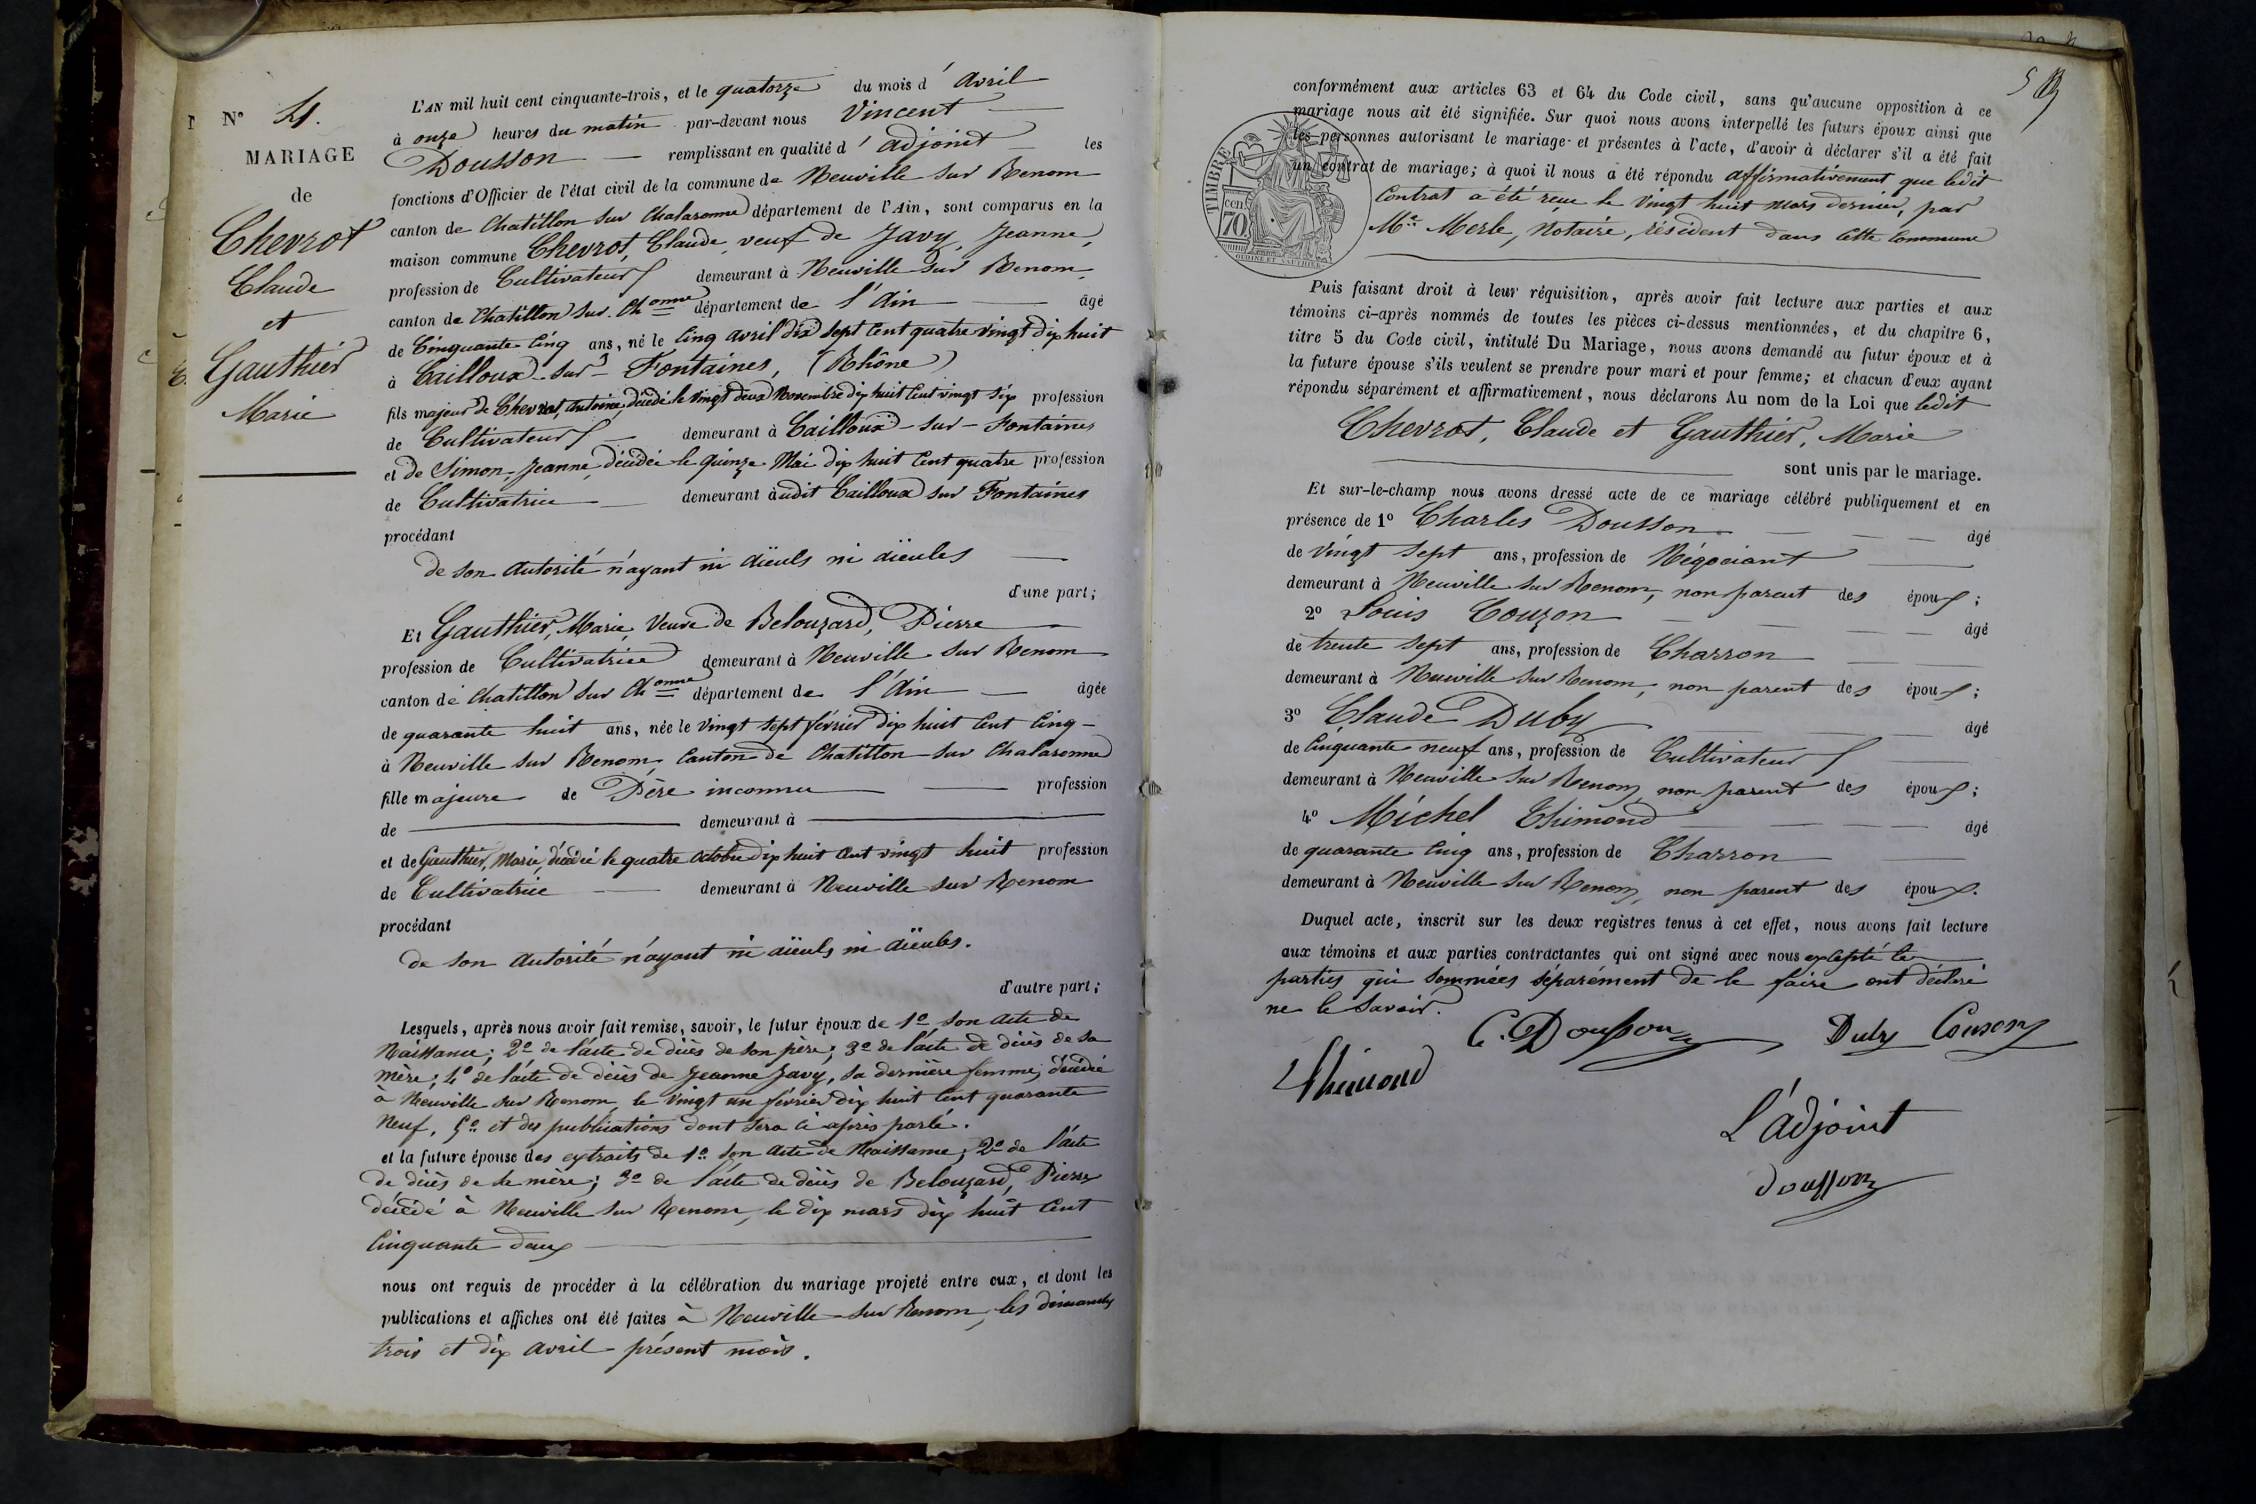 N° 4.
MARIAGE
de
Chevrot
Claude
et
Gauthier
Marie
L'AN mil huit cent cinquante-trois, et le quatorze du mois d'avril
à onze heures du matin par-devant nous Vincent
Dousson remplissant en qualité d'adjoint les
fonctions d'Officier de l'état civil de la commune de Neuville sur Renom
canton de Chatillon sur Chalaronne département de l'Ain, sont comparus en la
maison commune Chevrot, Claude, veuf de Javy, Jeanne,
profession de Cultivateur demeurant à Neuville sur Renom
canton de Chatillon sur Chonne département de l'Ain âgé
de Cinquante Cinq ans, né le Cinq avril dix sept Cent quatre vingt dix huit
à Cailloux-sur-Fontaines, (Rhône)
fils majeur de Chevrot, Antoine, décédé le vingt deux Novembre dix huit Cent vingt six profession
de Cultivateur demeurant à Cailloux-sur-Fontaines
et de Simon, Jeanne, décédée le quinze Mai dix huit Cent quatre profession
de Cultivatrice demeurant àudit Cailloux sur Fontaines
procédant
de son autorité n'ayant ni aïeuls ni aïeules
d'une part;
Et Gauthier, Marie, Veuve de Belouzard, Pierre
profession de Cultivatrice demeurant à Neuville sur Renom
canton de Chatillon sur Chonne département de l'Ain âgée
de quarante huit ans, née le vingt sept février dix huit Cent Cinq
à Neuville sur Renom, Canton de Chatillon sur Chalaronne
fille majeure de Père inconnu profession
de demeurant à
et de Gauthier, Marie, décédée le quatre octobre dix huit Cent vingt huit profession
de Cultivatrice demeurant à Neuville sur Renom
procédant
de son autorité n'ayant ni aïeuls ni aïeules.
d'autre part;
Lesquels, après nous avoir fait remise, savoir, le futur époux de 1° son acte de
Naissance; 2° de l'acte de décès de son père; 3° de l'acte de décès de sa
mère; 4° de l'acte de décès de Jeanne Javy, sa dernière femme, décédée
à Neuville sur Renom, le vingt un février dix huit Cent quarante
Neuf, 5° et des publications dont sera ci après parlé.
et la future épouse des extraits de 1° son acte de Naissance; 2° de l'acte
de décès de sa mère; 3° de l'acte de décès de Belouzard, Pierre
décédé à Neuville sur Renom, le dix mars dix huit Cent
Cinquante deux
nous ont requis de procéder à la célébration du mariage projeté entre eux, et dont les
publications et affiches ont été faites à Neuville-sur Renom, les dimanches
trois et dix avril présent mois.
conformément aux articles 63 et 64 du Code civil, sans qu'aucune opposition à ce
mariage nous ait été signifiée. Sur quoi nous avons interpellé les futurs époux ainsi que
les personnes autorisant le mariage et présentes à l'acte, d'avoir à déclarer s'il a été fait
un contrat de mariage; à quoi il nous a été répondu affirmativement que ledit
Contrat a été reçu le vingt huit mars dernier, par
Me Merle, Notaire, résident dans Cette Commune
TIMBRE
cen.
70
OUDINÉ ET VAUTHIER
Puis faisant droit à leur réquisition, après avoir fait lecture aux parties et aux
témoins ci-après nommés de toutes les pièces ci-dessus mentionnées, et du chapitre 6,
titre 5 du Code civil, intitulé Du Mariage, nous avons demandé au futur époux et à
la future épouse s'ils veulent se prendre pour mari et pour femme; et chacun d'eux ayant
répondu séparément et affirmativement, nous déclarons Au nom de la Loi que ledit
Chevrot, Claude et Gauthier, Marie
sont unis par le mariage.
Et sur-le-champ nous avons dressé acte de ce mariage célébré publiquement et en
présence de 1° Charles Dousson âgé
de vingt sept ans, profession de Négociant
demeurant à Neuville sur Renom, non parent des époux;
2° Louis Couzon âgé
de trente sept ans, profession de Charron
demeurant à Neuville sur Renom, non parent des époux;
3° Claude Duby âgé
de Cinquante neuf ans, profession de Cultivateur
demeurant à Neuville sur Renom, non parent des époux;
4° Michel Thimond âgé
de quarante Cinq ans, profession de Charron
demeurant à Neuville sur Renom, non parent des époux.
Duquel acte, inscrit sur les deux registres tenus à cet effet, nous avons fait lecture
aux témoins et aux parties contractantes qui ont signé avec nous excepté les
parties qui sommées séparément de le faire ont déclaré
ne le savoir.
C. Dousson Duby Couson
Thimond
L'adjoint
Dousson